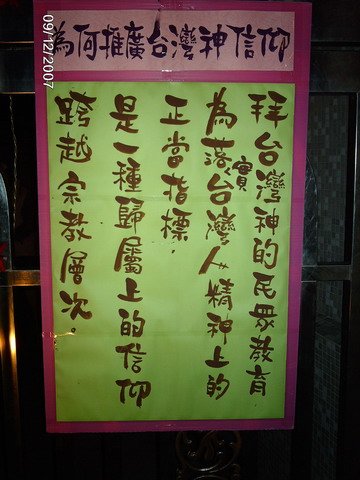 為何推廣台灣神信仰
拜台灣神的民眾教育
為落實台灣人精神上的
正當指標．
是一種歸屬上的信仰
跨越宗教層次。
09/12/2007